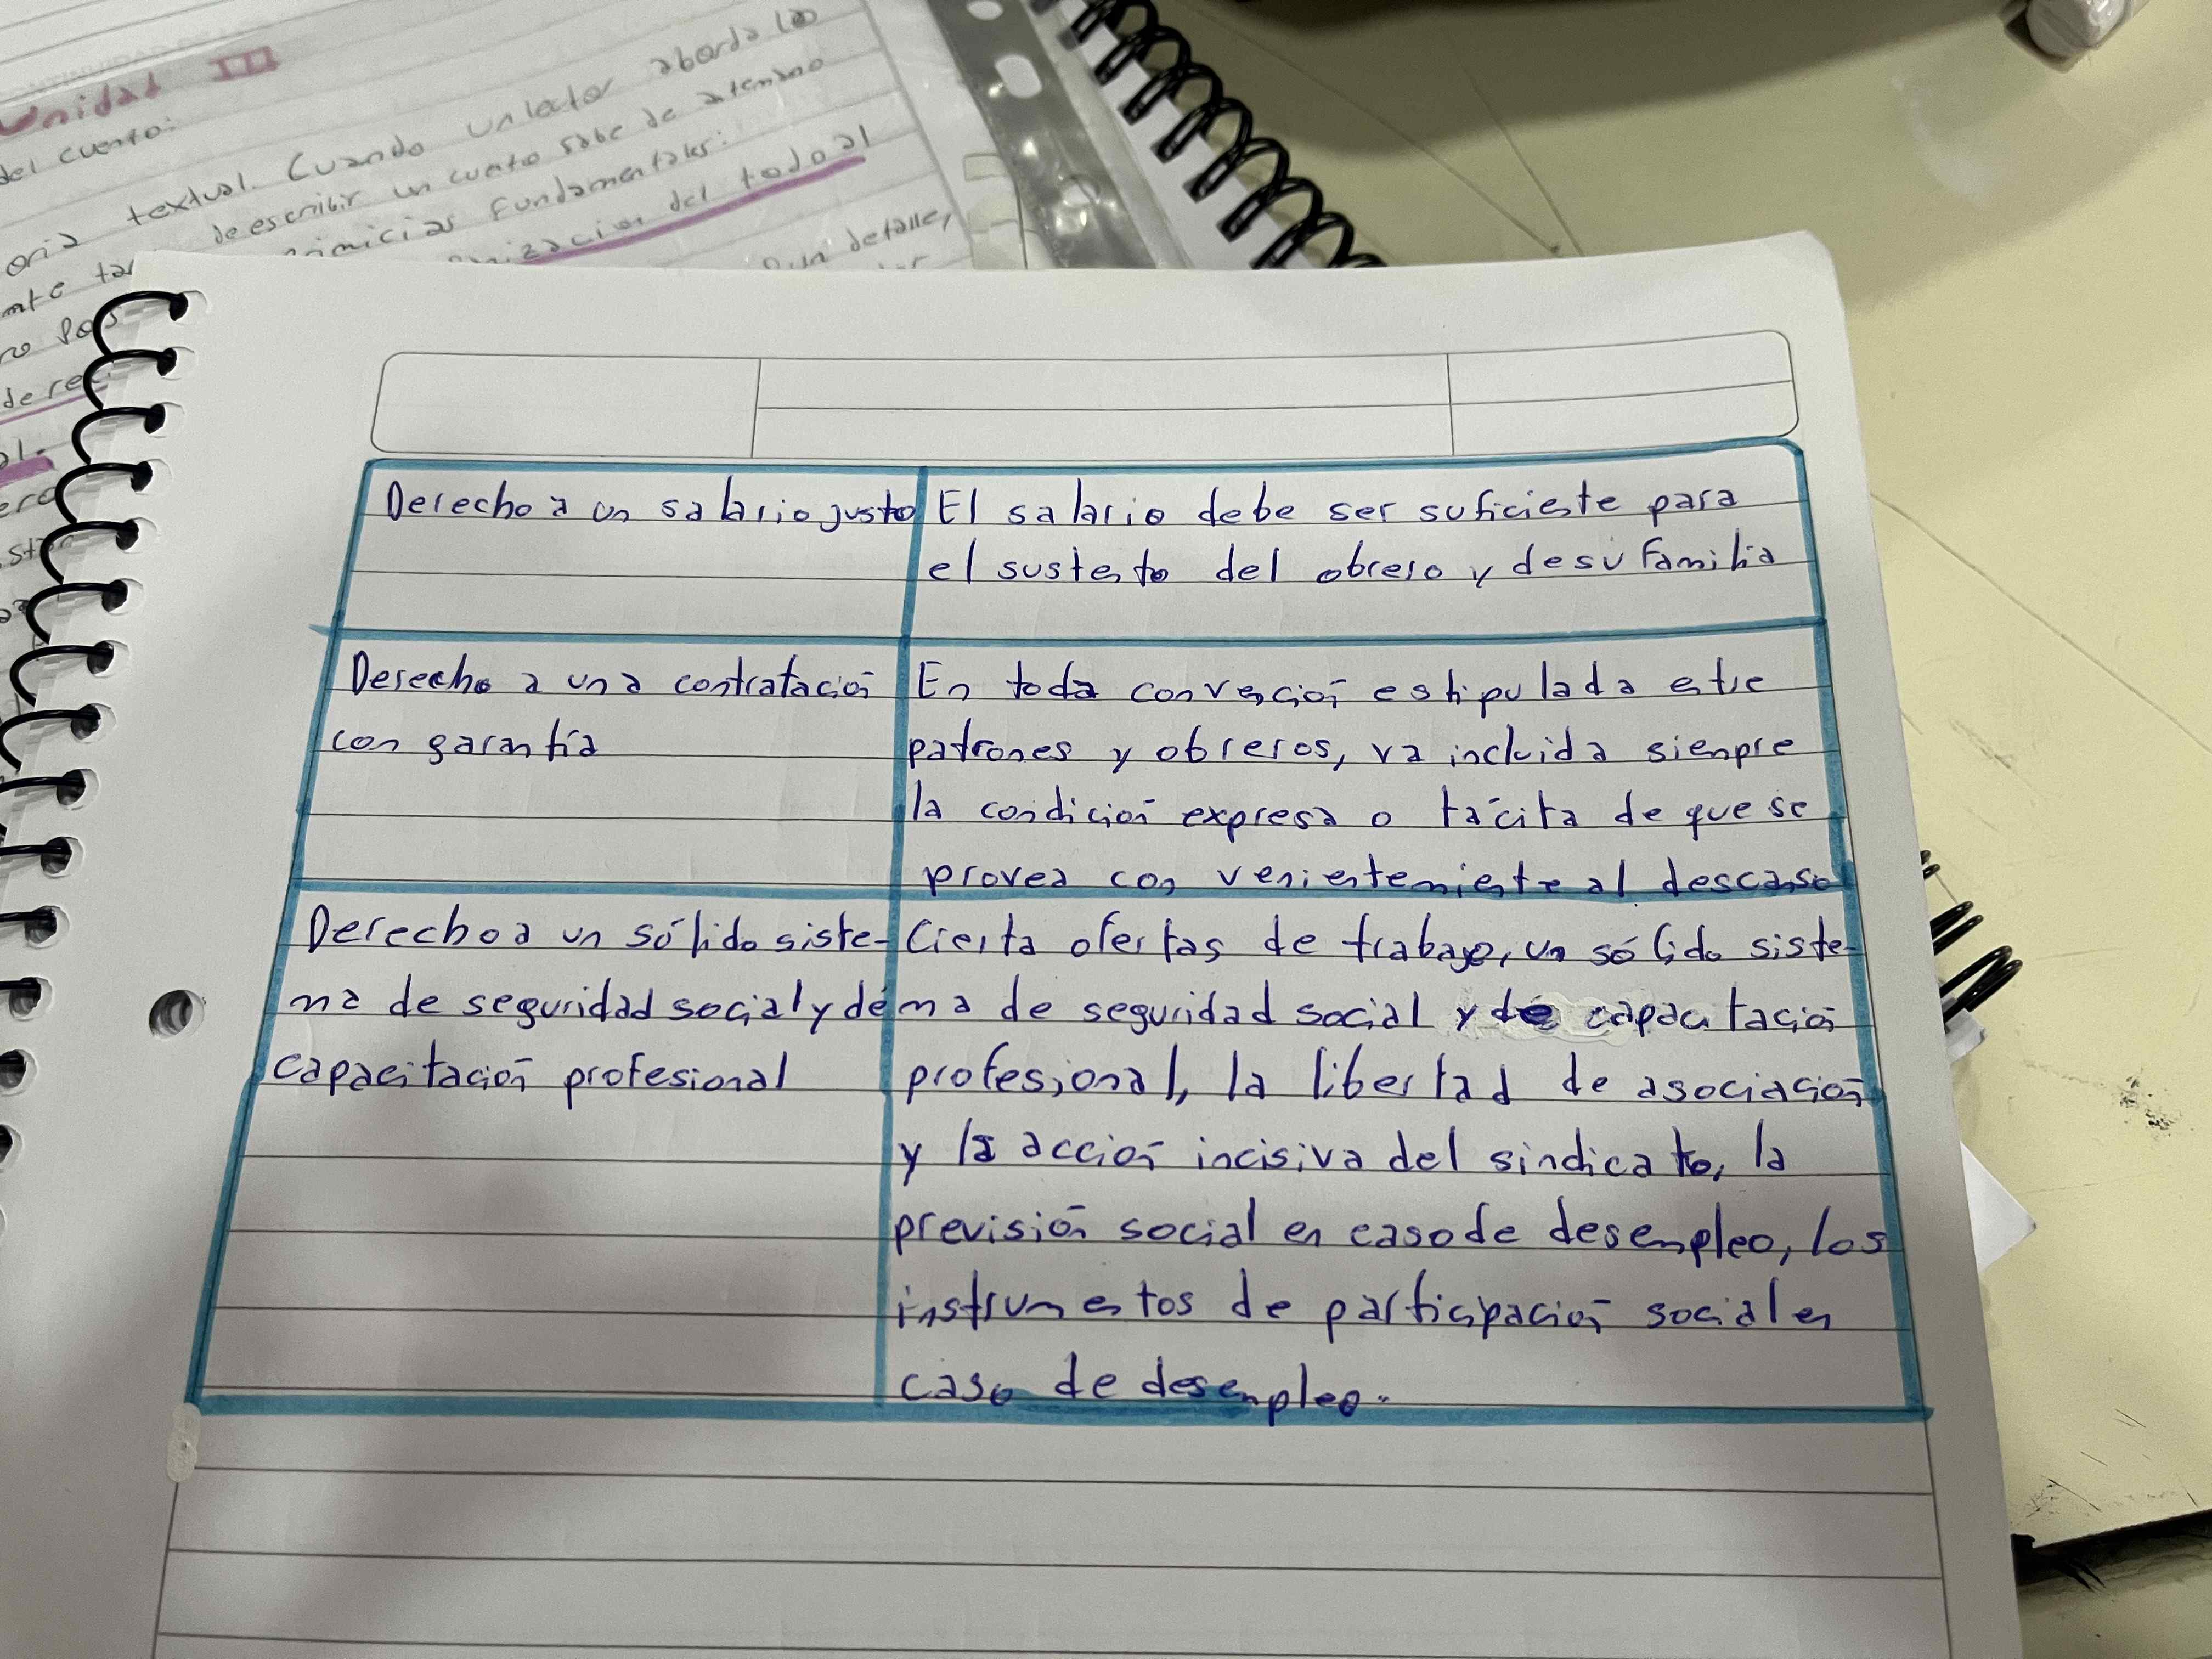 Unidad III
del cuento:
textual. Cuando un lector aborda la
de escribir un cuento sabe de atemano
fundamentales:
del todo al
un detalle,
Derecho a un salario justo
El salario debe ser suficiente para
el sustento del obrero y de su familia
Derecho a una contratación
con garantía
En toda convención estipulada entre
patrones y obreros, va incluida sienpre
la condición expresa o tácita de que se
provea con venientemiente al descanso
Derecho a un sólido siste-
ma de seguridad social y de
capacitación profesional
Cierta ofertas de trabajo, un sólido siste-
ma de seguridad social y de capacitación
profesional, la libertad de asociación
y la acción incisiva del sindicato, la
previsión social en caso de desempleo, los
instrumentos de participación social en
caso de desempleo.